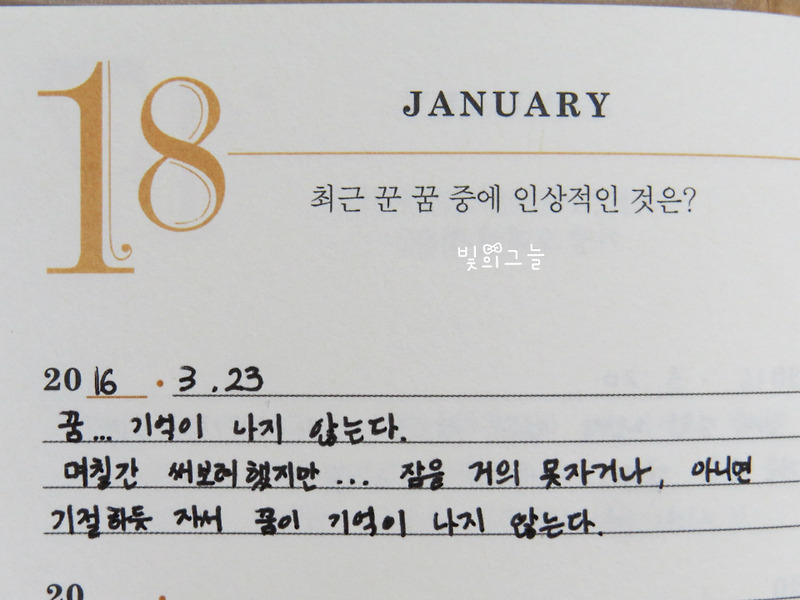 18
JANUARY
최근 꾼 꿈 중에 인상적인 것은?
빛의그늘
20 16 · 3.23
꿈... 기억이 나지 않는다.
며칠간 써보려했지만... 잠을 거의 못자거나, 아니면
기절하듯 자서 꿈이 기억이 나지 않는다.
20 ·